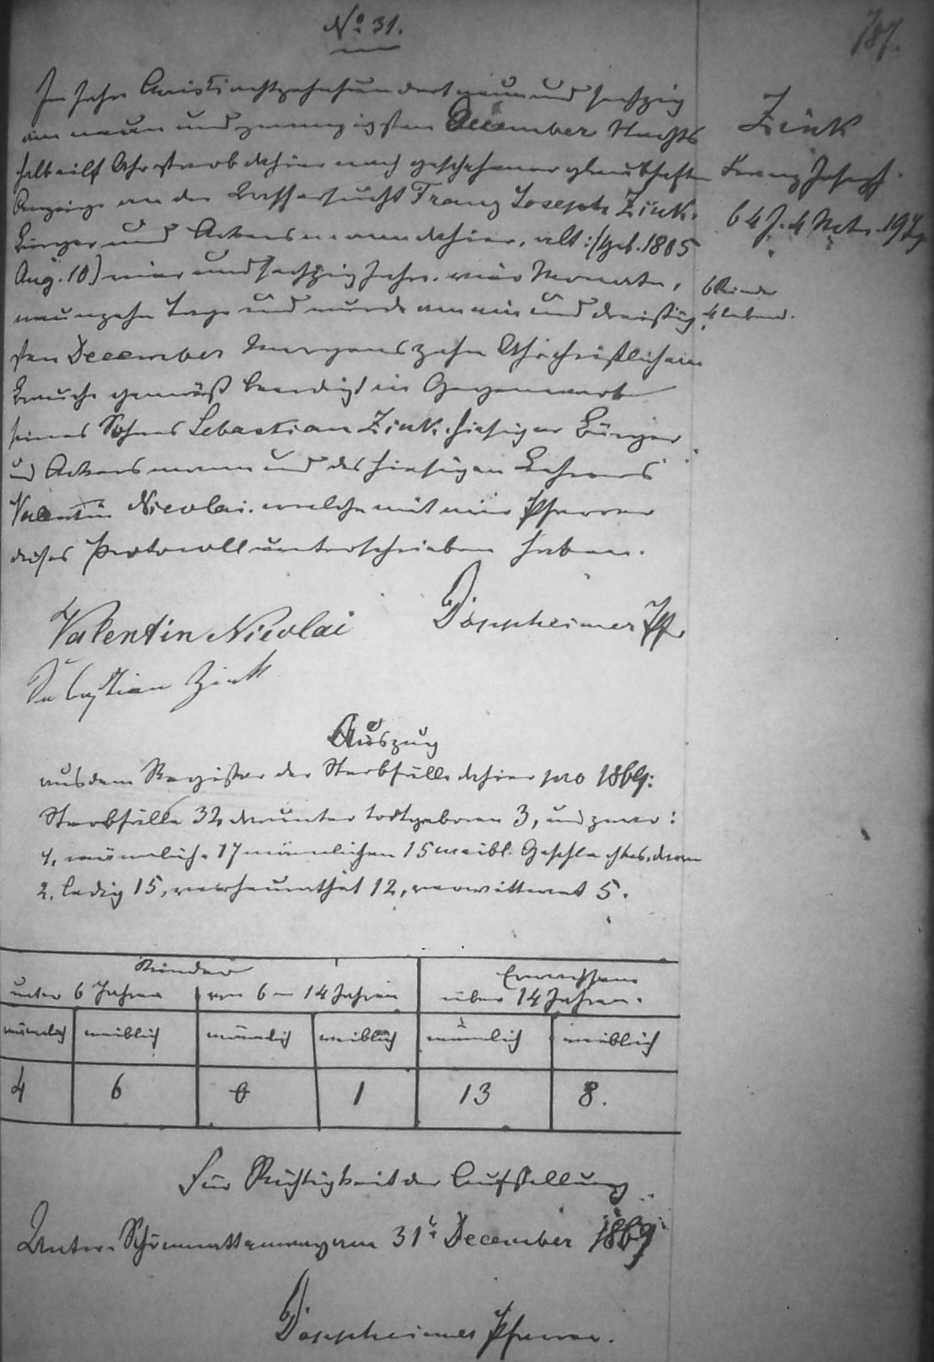 No 31.
787.
Im Jahre Christi achtzehnhundert neun und sechzig
am neun und zwanzigsten December Nachts
halb eilf Uhr starb dahier nach geschehener glaubhafter
Anzeige an der Wassersucht Franz Joseph Zink.
Bürger und Ackersmann dahier, alt :/geb. 1805
Aug. 10) vier und sechzig Jahre. vier Monate,
neunzehn Tage und wurde am ein und dreißig
sten December Morgens zehn Uhr christlichem
Brauche gemäß beerdigt in Gegenwart
seines Sohnes Sebastian Zink. hiesiger Bürger
und Ackersmann und des hiesigen Lehrers
Valentin Nicolai. welche mit mir Pfarrer
dieses Protocoll unterschrieben haben.
Zink
Franz Joseph.
64 J. 4 Mte. 19 Tg
6 Kinder
4 lebend.
Valentin Nicolai
Döppheimer Pf.
Sebastian Zink
Auszug
aus dem Register der Sterbfälle dahier pro 1869:
Sterbfälle 32, darunter todtgeboren 3, und zwar:
1, nämlich 17 männlichen 15 weibl. Geschlechtes, davon
2. ledig 15, verheurathet 12, verwittwet 5.
Kinder
Erwachsene
unter 6 Jahren von 6 - 14 Jahren über 14 Jahren.
männlich weiblich männlich weiblich männlich weiblich
4 6 0 1 13 8.
Für Richtigkeit der Aufstellung
Unter-Schönmattenwag am 31t December 1869
Döppheimer Pfarrer.